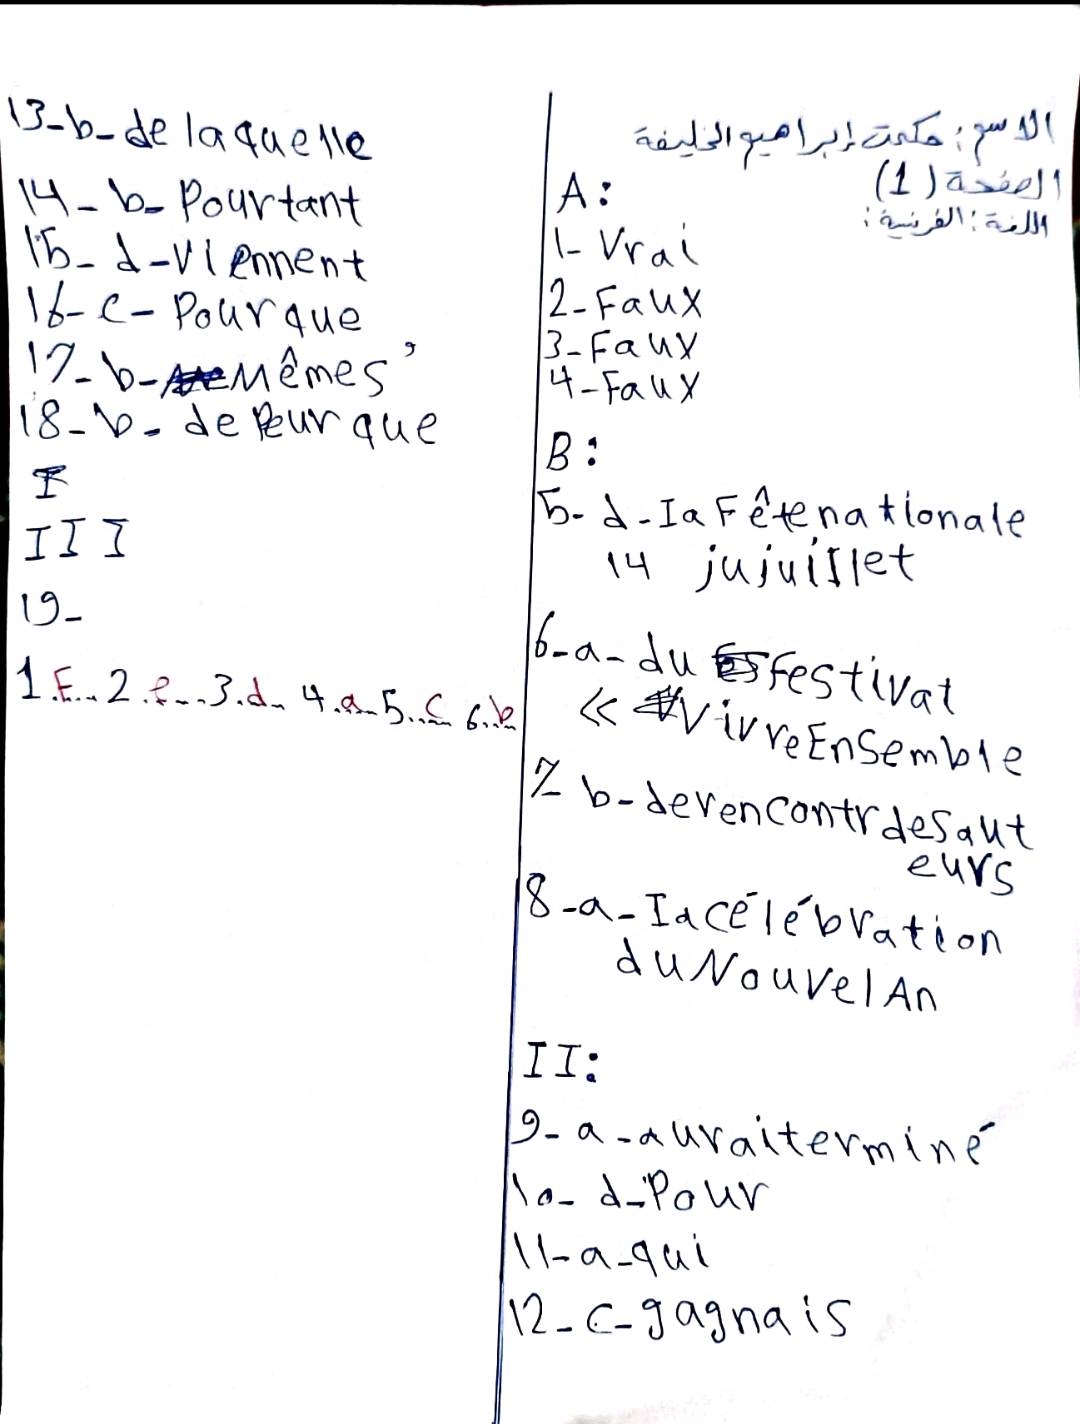 الاسم: حكمت إبراهيم الخليفة
الصفحة (1)
اللغة: الفرنسية:
A:
1- Vrai
2- Faux
3- Faux
4- Faux
B:
5- d- la Fête nationale
14 jujuillet
6- a- du Festivat
<< Vivre EnSemble
7 b- de rencontr des aut
eurs
8- a- la célébration
du Nouvel An
II:
9- a- aurait terminé
10- d- Pour
11- a- qui
12- c- gagnais
13- b- de laquelle
14- b- Pourtant
15- d- Viennent
16- c- Pour que
17- b- Mêmes'
18- b- de Peur que
III
19-
1.F... 2.e... 3.d.. 4.a.. 5..c.. 6..b